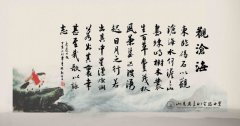 觀滄海
東臨碣石以觀
滄海水何澹澹山
島竦峙樹木叢
生百草豐茂秋
風蕭瑟洪波湧
起日月之行若
出其中星漢燦
爛若出其裏幸
甚至哉歌以詠
志